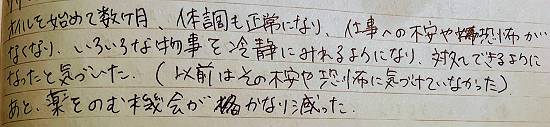 オイルを始めて数ヶ月、体調も正常になり、仕事への不安や恐怖が
なくなり、いろいろな物事を冷静にみれるようになり、対処できるように
なったと気づいた。(以前はその不安や恐怖に気づけていなかった)
あと、薬をのむ機会がかなり減った.